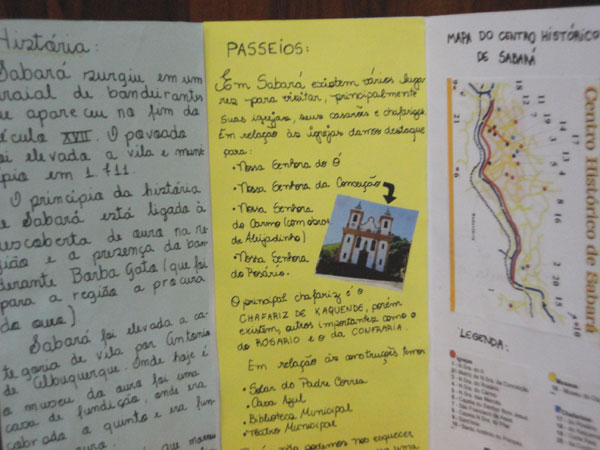 História:
Sabará surgiu em um
arraial de bandeirantes
que apareceu no fim do
século XVII. O povoado
foi elevada a vila e muni
cípio em 1.711.
O princípio da história
de Sabará está ligado à
descoberta de ouro na re
gião e a presença do ban
deirante Borba Gato (que foi
para a região a procura
do ouro)
Sabará foi elevada a ca
tegoria de vila por Antonio
de Albuquerque. Onde hoje é
o museu do ouro foi uma
casa de fundição, onde era
cobrado o quinto e era fun
ouro.
que
PASSEIOS:
Em Sabará existem vários luga
res para visitar, principalmente
suas igrejas, seus casarões e chafarizes.
Em relação às igrejas damos destaque
para:
• Nossa Senhora do Ó
• Nossa Senhora da Conceição
• Nossa Senhora
do Carmo (com obras
de Aleijadinho)
• Nossa Senhora
do Rosário.
O principal chafariz é o
CHAFARIZ DE KAQUENDE, porém
existem, outros importantes como o
do ROSÁRIO e o da CONFRARIA.
Em relação às construções temos
• Solar do Padre Correa
• Casa Azul
• Biblioteca Municipal
• Teatro Municipal
não podemos nos esquecer
uma
MAPA DO CENTRO HISTÓRICO
DE SABARÁ
Centro Histórico de Sabará
18
12
11
19
17
13
4
5
14
3
8
16
21
6
2
20
15
10
LEGENDA:
Igrejas